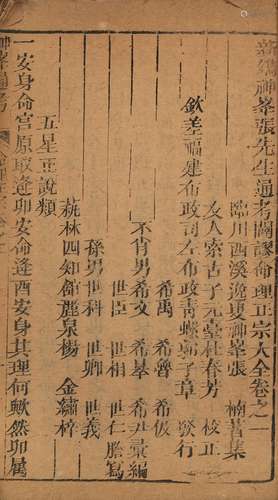 新集神峯張先生通考闢謬命理正宗大全卷之一
臨川西溪逸叟神峯張 楠著集
友人索古子元臺杜春芳 校正
欽差福建布政司左布政青螺郭子章 發行
希禹 希魯 希伋
不肖男希文 希皋 希尹彙編
世臣 世相 世仁謄寫
孫男世科 世卿 世義
蓺林四知館麗泉楊 金繡梓
五星正說類
一安身命宮原取逢卯安命逢酉安身其理何歟然卯屬